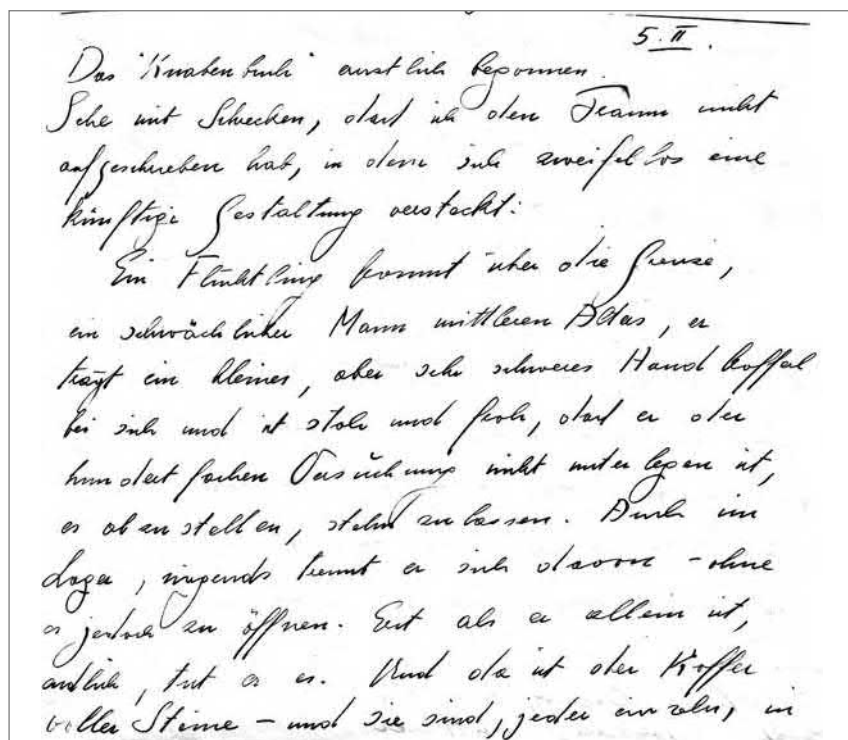 5.II.
Das "Knabenbuch" ernstlich begonnen.
Sehe mit Schrecken, daß ich den Traum nicht
aufgeschrieben hab, in dem sich zweifellos eine
künftige Gestaltung versteckt:
Ein Flüchtling kommt über die Grenze,
ein schwächlicher Mann mittleren Alters, er
trägt ein kleines, aber sehr schweres Handkoffer
bei sich und ist stolz und froh, daß er der
hundertfachen Versuchung nicht unterlegen ist,
es abzustellen, stehn zu lassen. Auch im
Lager, nirgends trennt er sich davon - ohne
es jedoch zu öffnen. Erst als er allein ist,
endlich, tut er es. Und da ist der Koffer
voller Steine - und sie sind, jeder einzeln, in